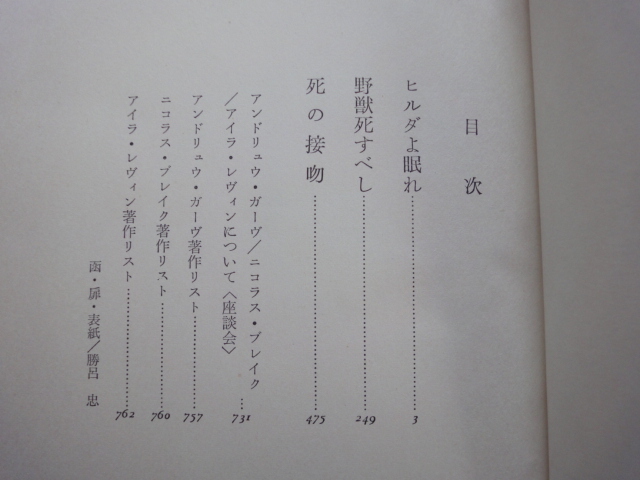 目次
ヒルダよ眠れ……3
野獣死すべし……249
死の接吻……475
アンドリュウ・ガーヴ/ニコラス・ブレイク
/アイラ・レヴィンについて〈座談会〉…731
アンドリュウ・ガーヴ著作リスト……757
ニコラス・ブレイク著作リスト……760
アイラ・レヴィン著作リスト……762
函・扉・表紙/勝呂 忠